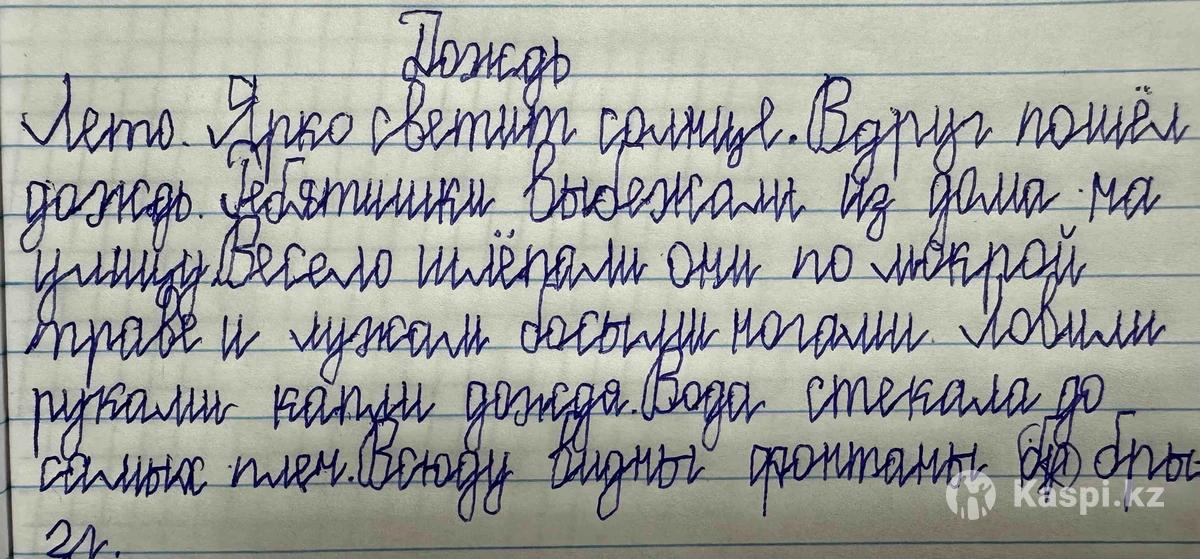 Дождь
Лето. Ярко светит солнце. Вдруг пошёл
дождь. Ребятишки выбежали из дома на
улицу. Весело шлёпали они по мокрой
траве и лужам босыми ногами. Ловили
руками капли дождя. Вода стекала до
самых плеч. Всюду видны фонтаны бры-
зг.
Kaspi.kz